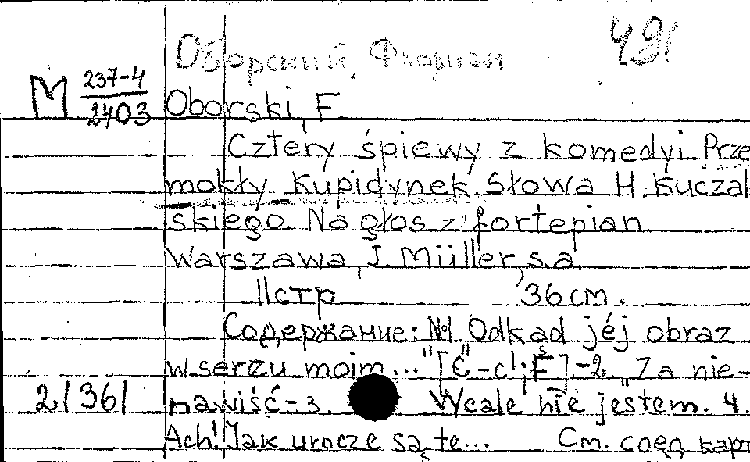 Оборский, Флориан 491
М 237-4/2403 Oborski, F.
Cztery śpiewy z komedyi Prze
mokły Kupidynek. Słowa H. Kuczal
skiego. Na głos z fortepian
Warszawa, J. Müller, s.a.
11 стр 36 cm.
Содержание: №1. Odkąd jéj obraz
w sercu moim..." [C-c¹; F] -2. "Za nie-
21361 nawiść-3. Wcale nie jestem. 4.
Ach! Jak urocze są te... См. след. карт